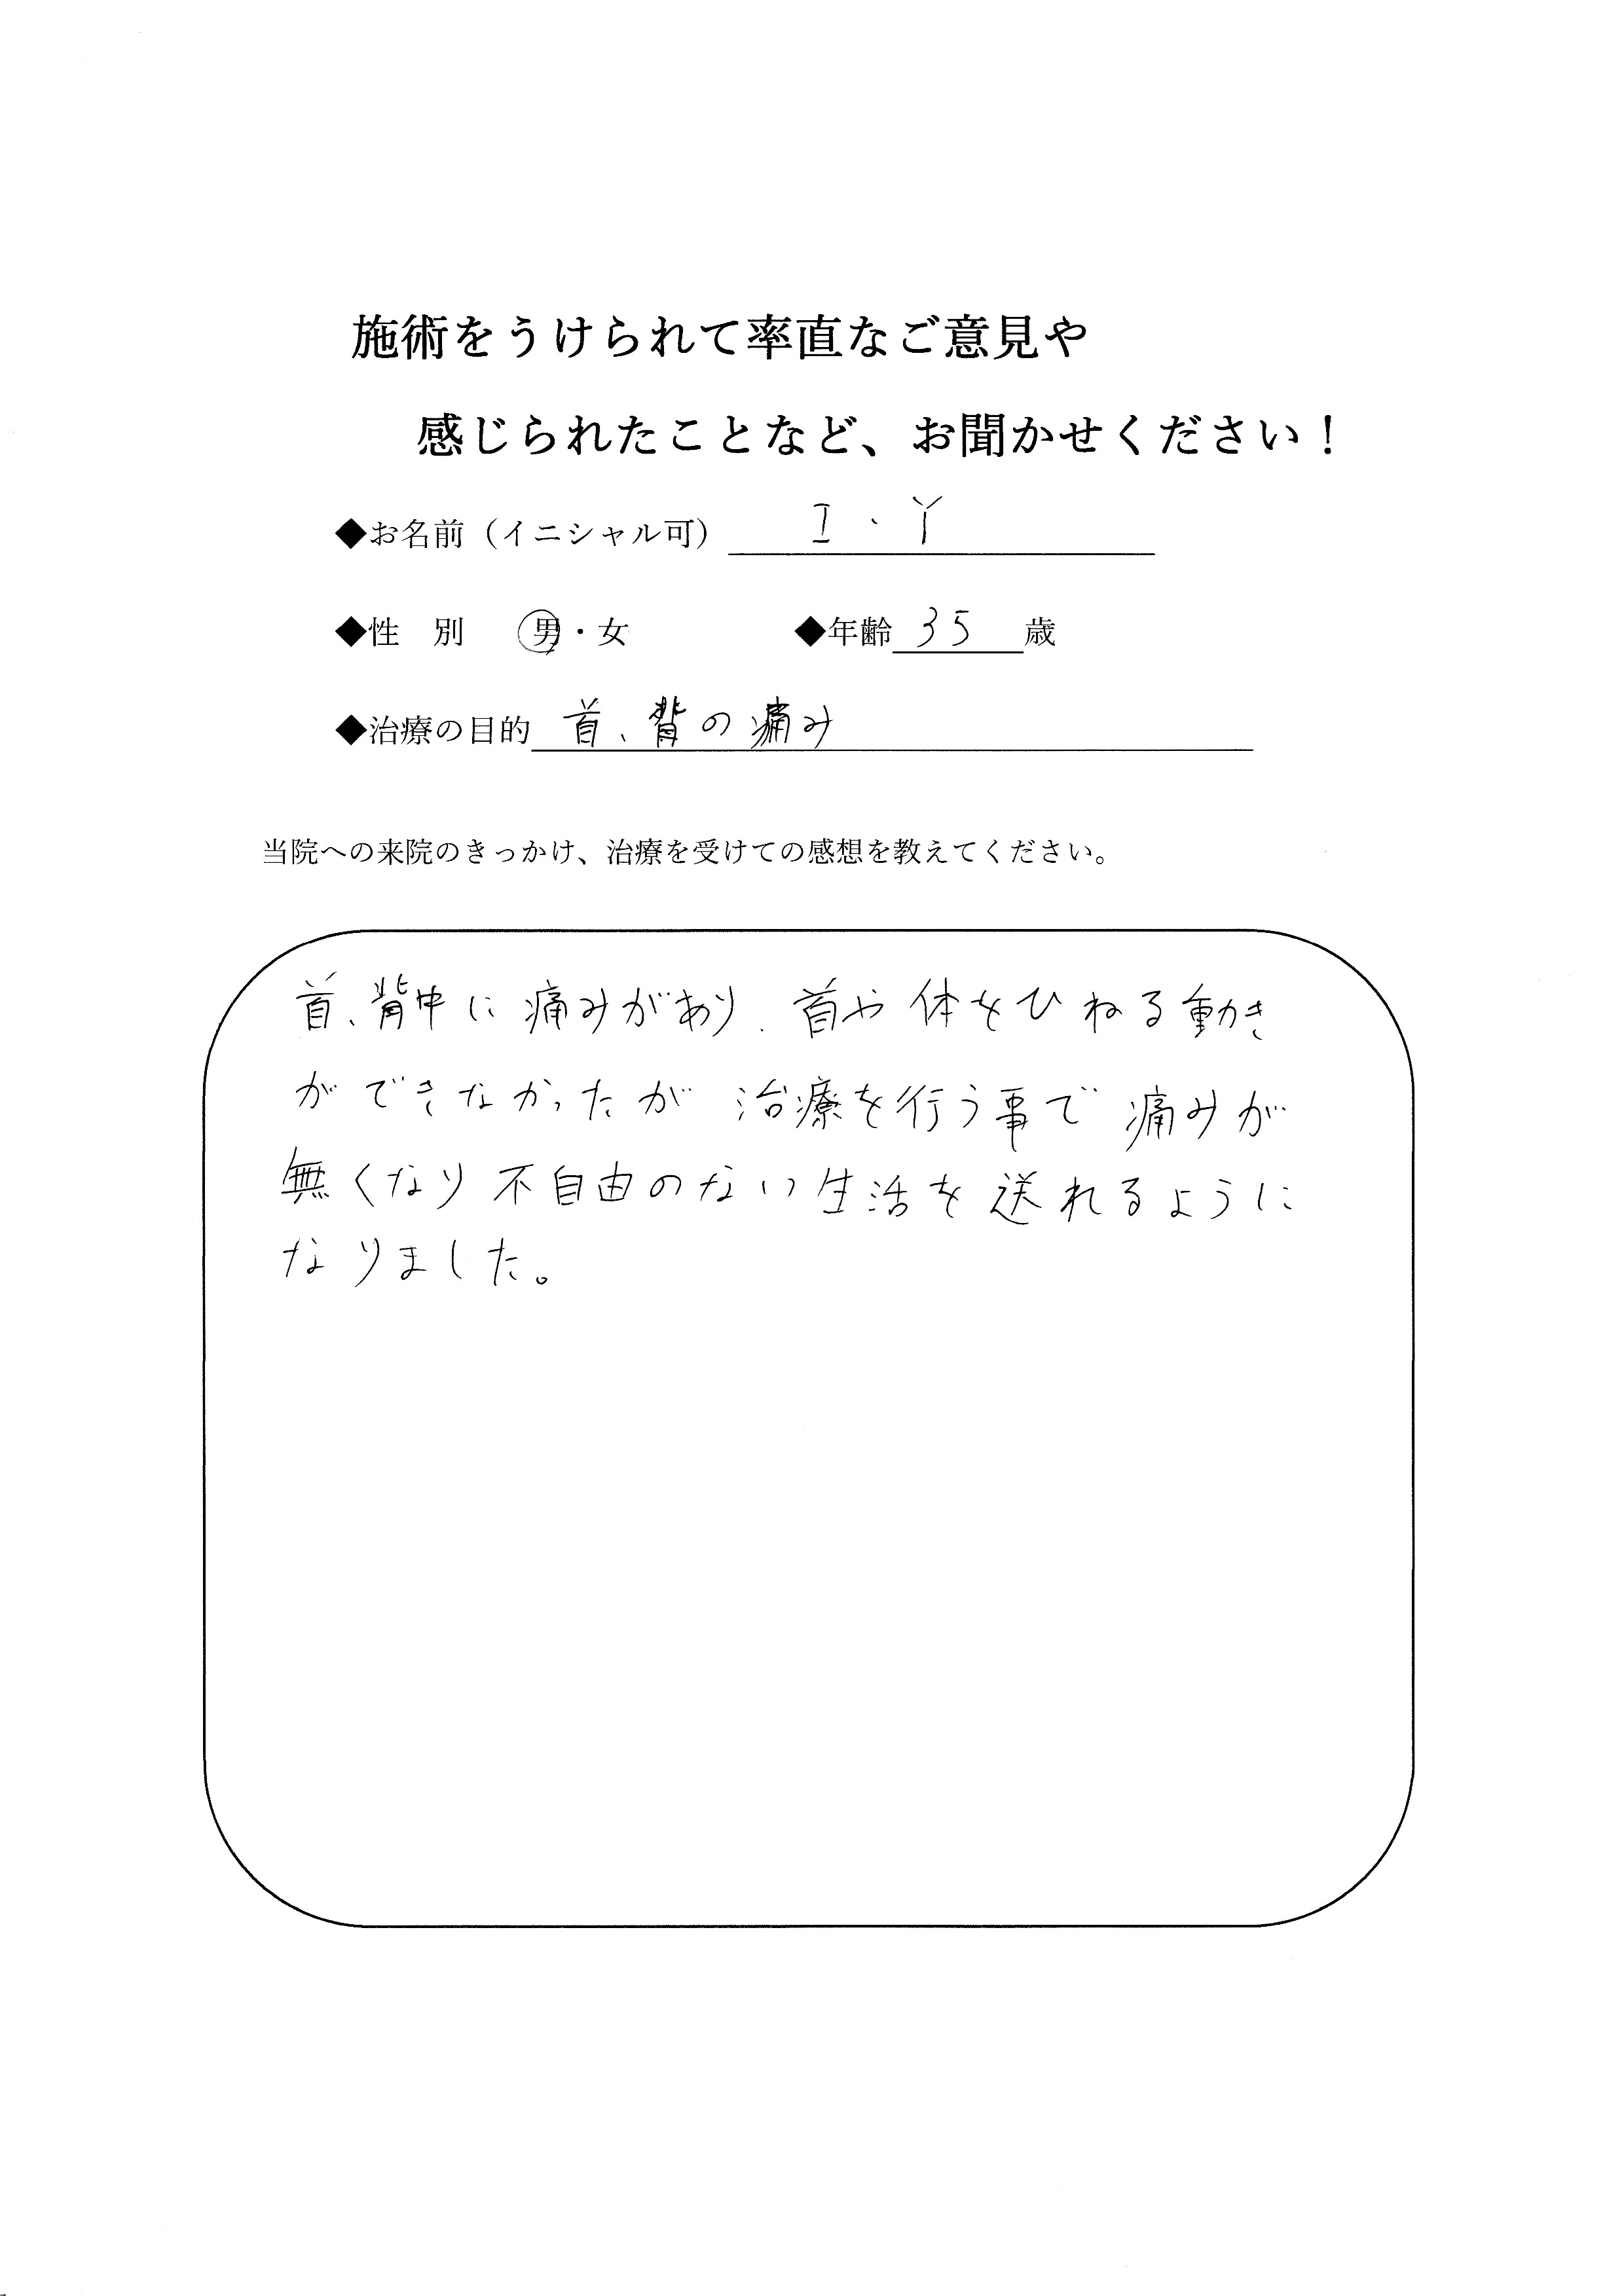 施術をうけられて率直なご意見や
感じられたことなど、お聞かせください！
◆お名前（イニシャル可） I・Y
◆性 別 男・女 ◆年齢 35 歳
◆治療の目的 首、背の痛み
当院への来院のきっかけ、治療を受けての感想を教えてください。
首、背中に痛みがあり、首や体をひねる動き
ができなかったが治療を行う事で痛みが
無くなり不自由のない生活を送れるように
なりました。